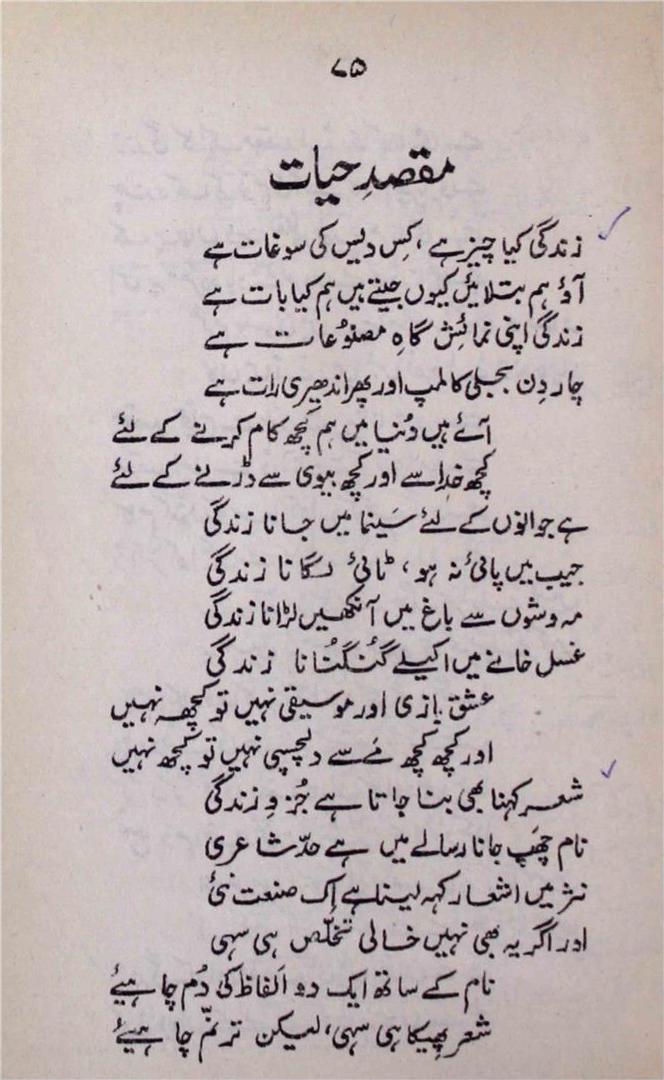 ۷۵
مقصدِ حیات
زندگی کیا چیز ہے، کِس دیس کی سوغات ہے
آؤ ہم بتلائیں کیوں جیتے ہیں ہم کیا بات ہے
زندگی اپنی نمائش گاہِ مصنوُعات ہے
چار دِن بجلی کا لمپ اور پھر اندھیری رات ہے
آئے ہیں دُنیا میں ہم کچھ کام کرنے کے لئے
کچھ خدا سے اور کچھ بیوی سے ڈرنے کے لئے
ہے جوانوں کے لئے سَینما میں جانا زندگی
جیب میں پائی نہ ہو، ٹائی لگانا زندگی
مہ وشوں سے باغ میں آنکھیں لڑانا زندگی
غسل خانے میں اکیلے گُنگُنانا زندگی
عشق بازی اور موسیقی نہیں تو کچھ نہیں
اور کچھ کچھ مَے سے دلچسپی نہیں تو کچھ نہیں
شعر کہنا بھی بنا جاتا ہے جُزوِ زندگی
نام چھَپ جانا رسالے میں ہے حدّ شاعری
نثر میں اشعار کہہ لینا ہے اِک صنعت نئی
اور اگر یہ بھی نہیں خالی تخلّص ہی سہی
نام کے ساتھ ایک دو اَلفاظ کی دُم چاہیئے
شعر پھیکا ہی سہی، لیکن ترنّم چاہیئے